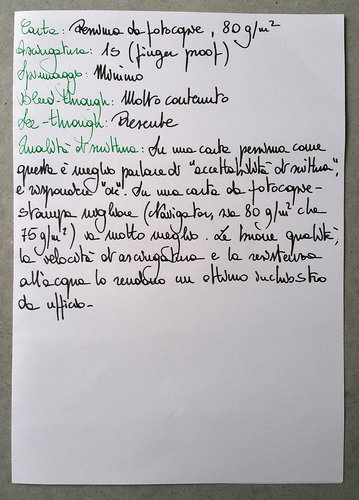 Carta: Pessima da fotocopie, 80 g/m²
Asciugatura: 1s (finger proof)
Spiumaggio: Minimo
Bleed-through: Molto contenuto
See-through: Presente
Qualità di scrittura: Su una carta pessima come
questa è meglio parlare di "accettabilità di scrittura",
e rispondere "ok". Su una carta da fotocopie-
stampa migliore (Navigator, sia 80 g/m² che
75 g/m²) va molto meglio. Le buone qualità,
la velocità di asciugatura e la resistenza
all'acqua lo rendono un ottimo inchiostro
da ufficio.